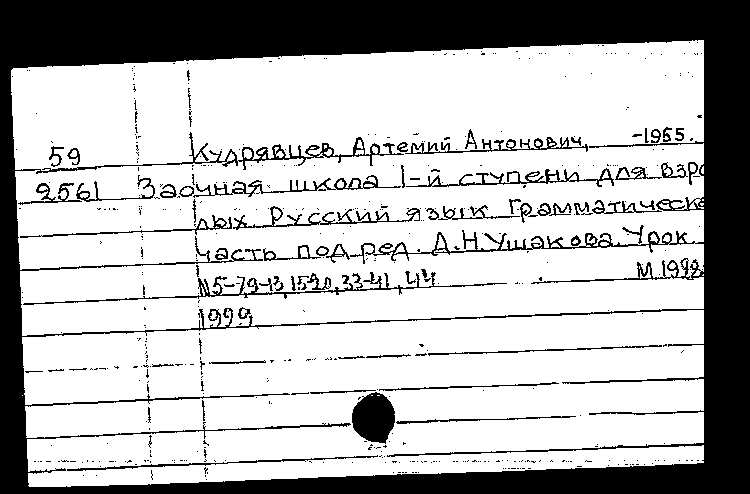 59 Кудрявцев, Артемий Антонович, -1955.
2561 Заочная школа 1-й ступени для взро
лых. Русский язык. Грамматическа
часть под ред. Д.Н.Ушакова. Урок.
N5-7,9-13,15-20,33-41,44 М. 1928
1929